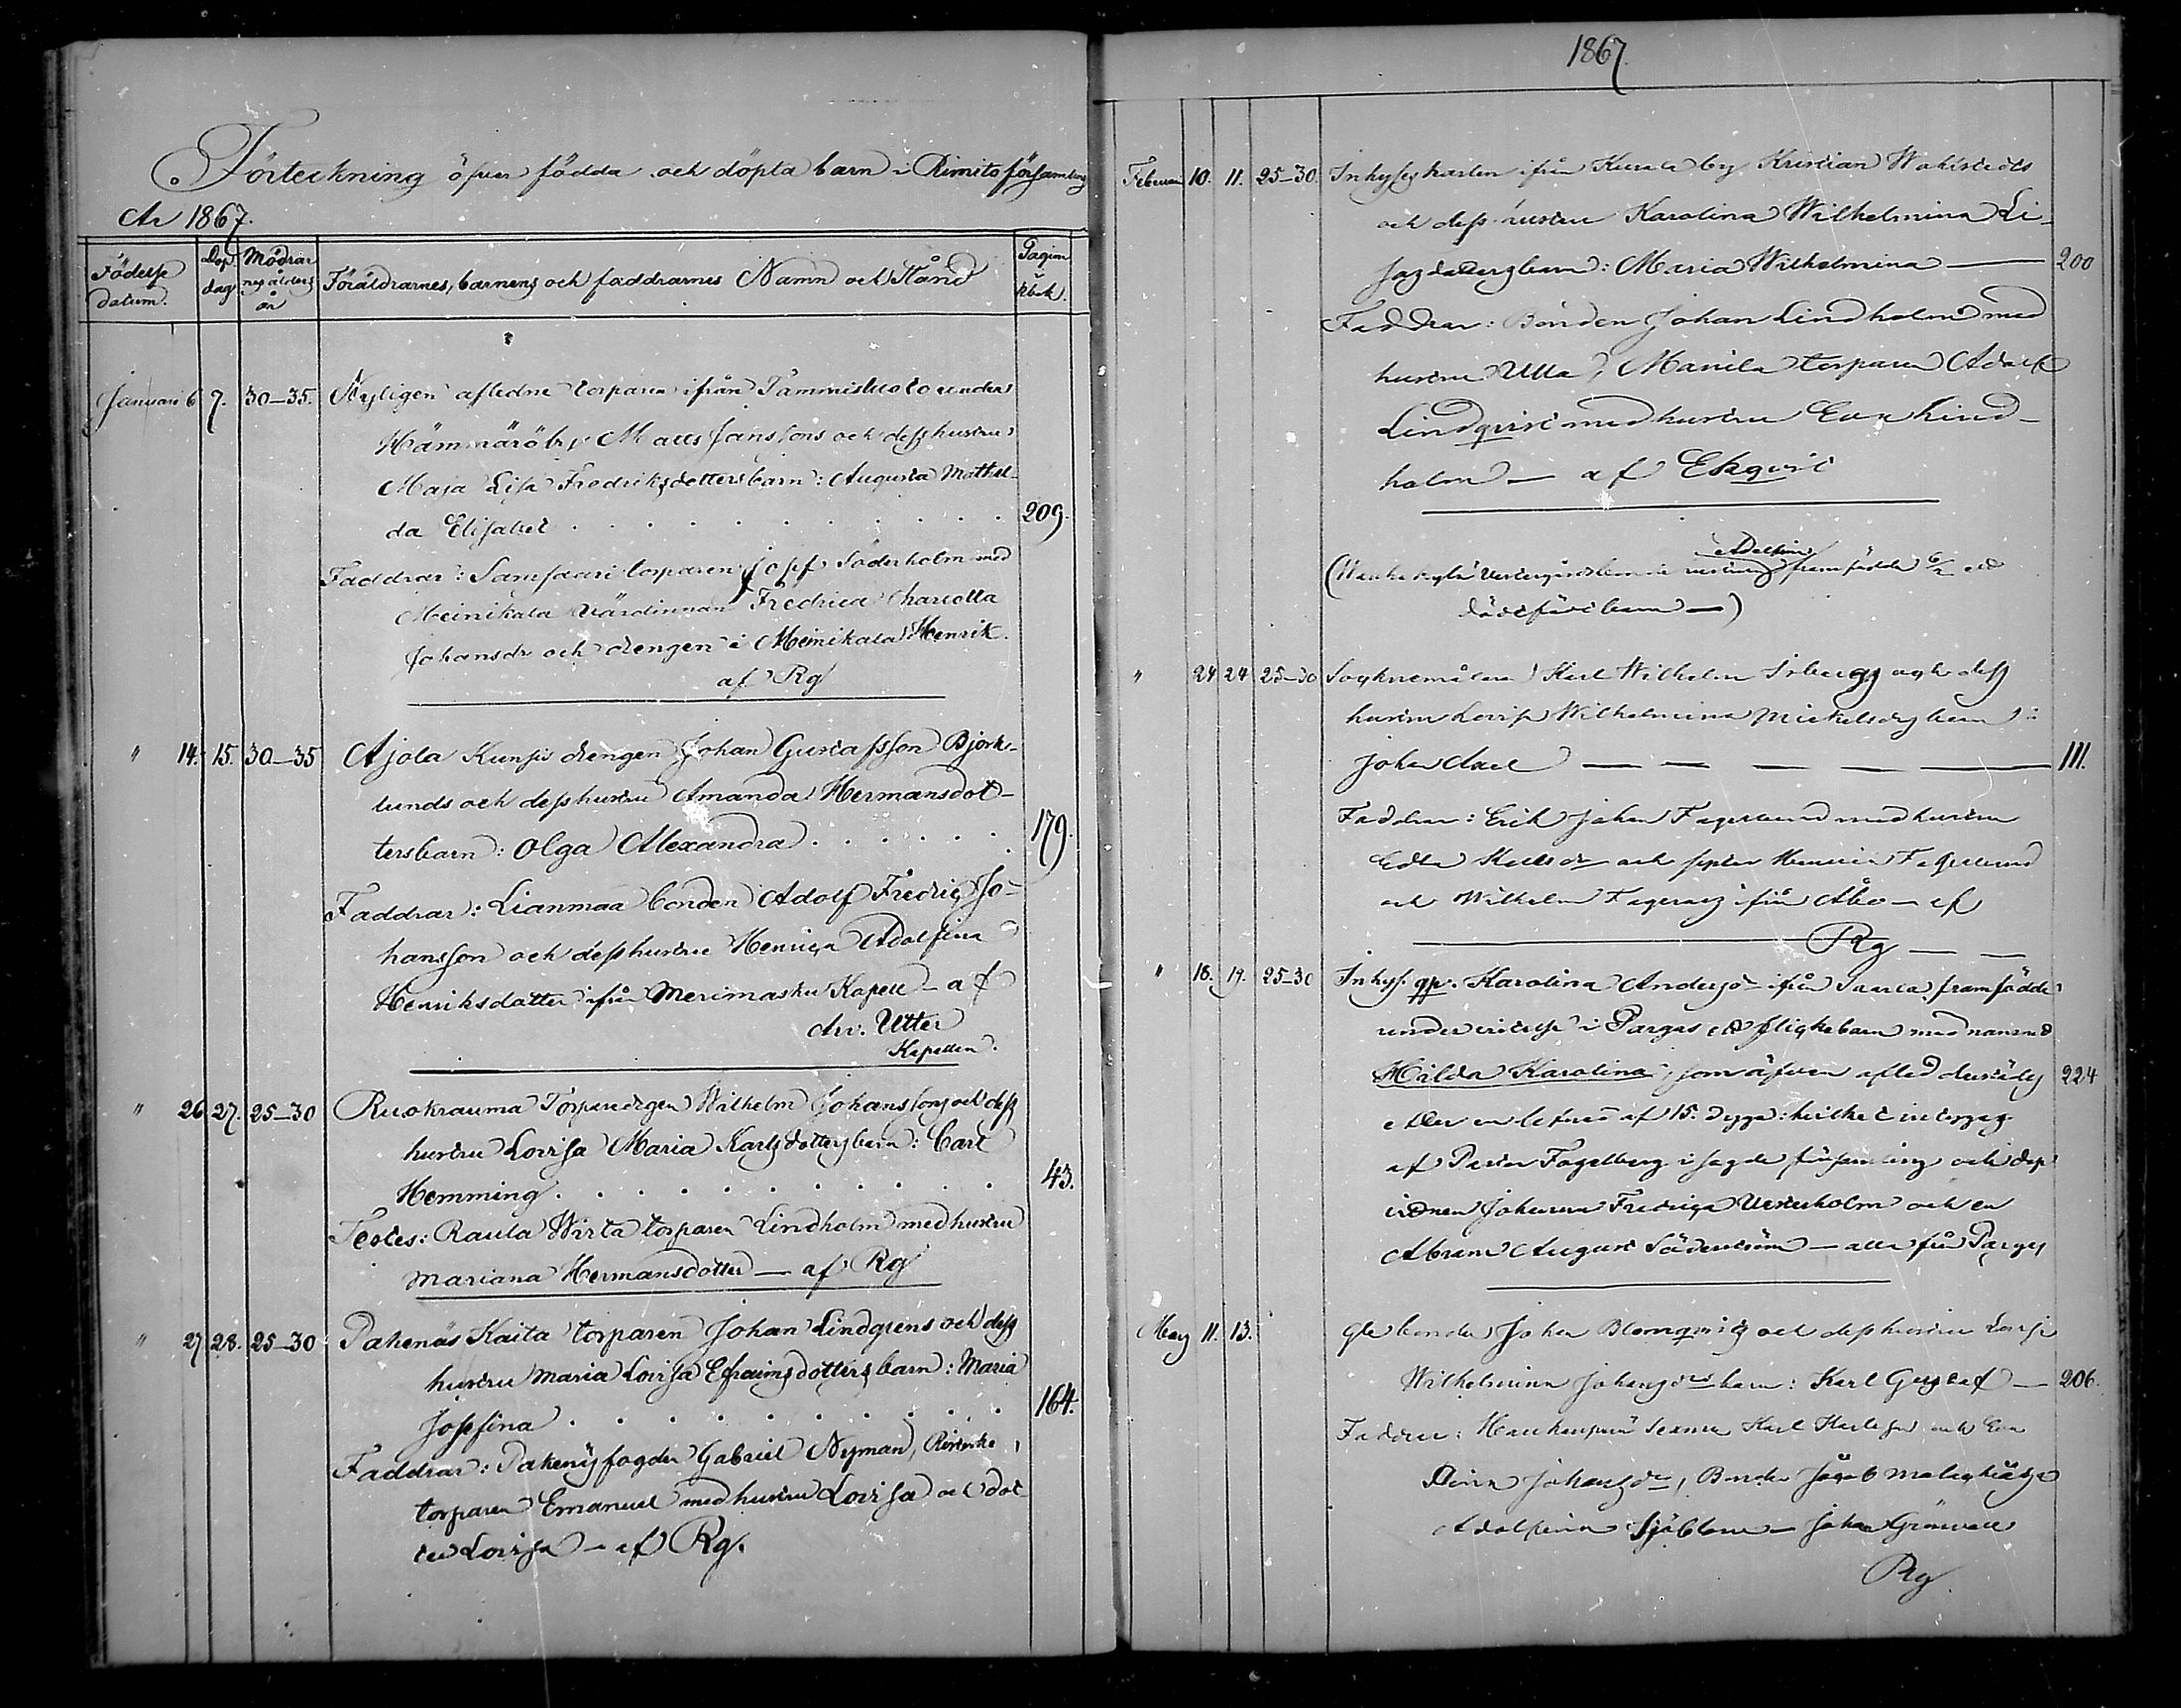 Förteckning öfver födda och döpta barn i Rimito församling
År 1867.
Födelse datum.
Dop dag
Mödrarnes ålders år
Föräldrarnes, barnens och faddrarnes Namn och Stånd
Pagina i kbok.
Januari 6 7. 30-35. Nyligen aflidne torparen ifrån Tammisluoto under
Hämmäröby, Matts Janssons och dess hustrus
Maja Lisa Fredriksdotters barn: Augusta Mathil-
da Elisabet 209.
Faddrar: Samsaari torparen Josef Söderholm med
Meinikala värdinnan Fredrica Charlotta
Johansdr och drengen i Meinikala Henrik.
af Rg
" 14. 15. 30-35 Ajola drengen Johan Gustafsson Björk-
lunds och dess hustrus Amanda Hermansdot-
ters barn: Olga Alexandra 179.
Faddrar: Lianmaa bonden Adolf Fredrig Jo-
hansson och dess hustru Henrica Adolfina
Henriksdotter ifrån Merimasku Kapell - af
Utter
Kapellan.
" 26 27. 25-30 Ruokrauma Wilhelm Johanssons och dess
hustru Lovisa Maria Karlsdotters barn: Carl
Hemming 43.
Testes: Raula Wirta torparen Lindholm med hustru
Mariana Hermansdotter - af Rg
" 27 28. 25-30 Pakenäs Kaita torparen Johan Lindgrens och dess
hustru Maria Lovisa Efraimsdotters barn: Maria
Josefina 164.
Faddrar: fogden Gabriel Nyman,
torparen Emanuel med hustru Lovisa och dot-
ter Lovisa - af Rg.
1867.
Februari 10. 11. 25-30. Inhyses karlen ifrån by Kristian Wahlstedts
och dess hustru Karolina Wilhelmina Li-
barn: Maria Wilhelmina 200
Faddrar: Bonden Johan Lindholm med
hustru Ulla, Manila torparen Adolf
Lindqvist med hustru Eva Lind-
holm - af Ekqvist
Adolfina
framfödde 6/2 ett
dödfödt barn -)
" 24 24 25-30 Sockne målaren Karl Wilhelm och dess
hustru Lovisa Wilhelmina Mickelsdrs barn:
Johan Axel 111.
Faddrar: Erik Johan Fagerlund med hustru
Edla Karlsdr och Fagerlund
och Wilhelm ifrån Åbo - af
Rg
" 18. 19. 25-30 Inhys. qp. Karolina Andersdr ifrån framfödde
under vistelse i Pargas ett flickebarn med namnet
Hilda Karolina, som äfven afled derstädes 224
efter en lefnad af 15. dygn: hvilket
af Pastor Fogelberg i sagde församling och dop
Johanna Fredrica Westerholm och en
Abram August Söderström - alla från Pargas
Mars 11. 13. bonden Johan Blomqvists och dess hustru Lovisa
Wilhelmina Johansdrs barn: Karl Gustaf 206.
Faddrar: Karl Karlsson och Eva
Johansdr, Bonden Jacob
Adolfina Sjöblom - Johan Grönvall
Rg.